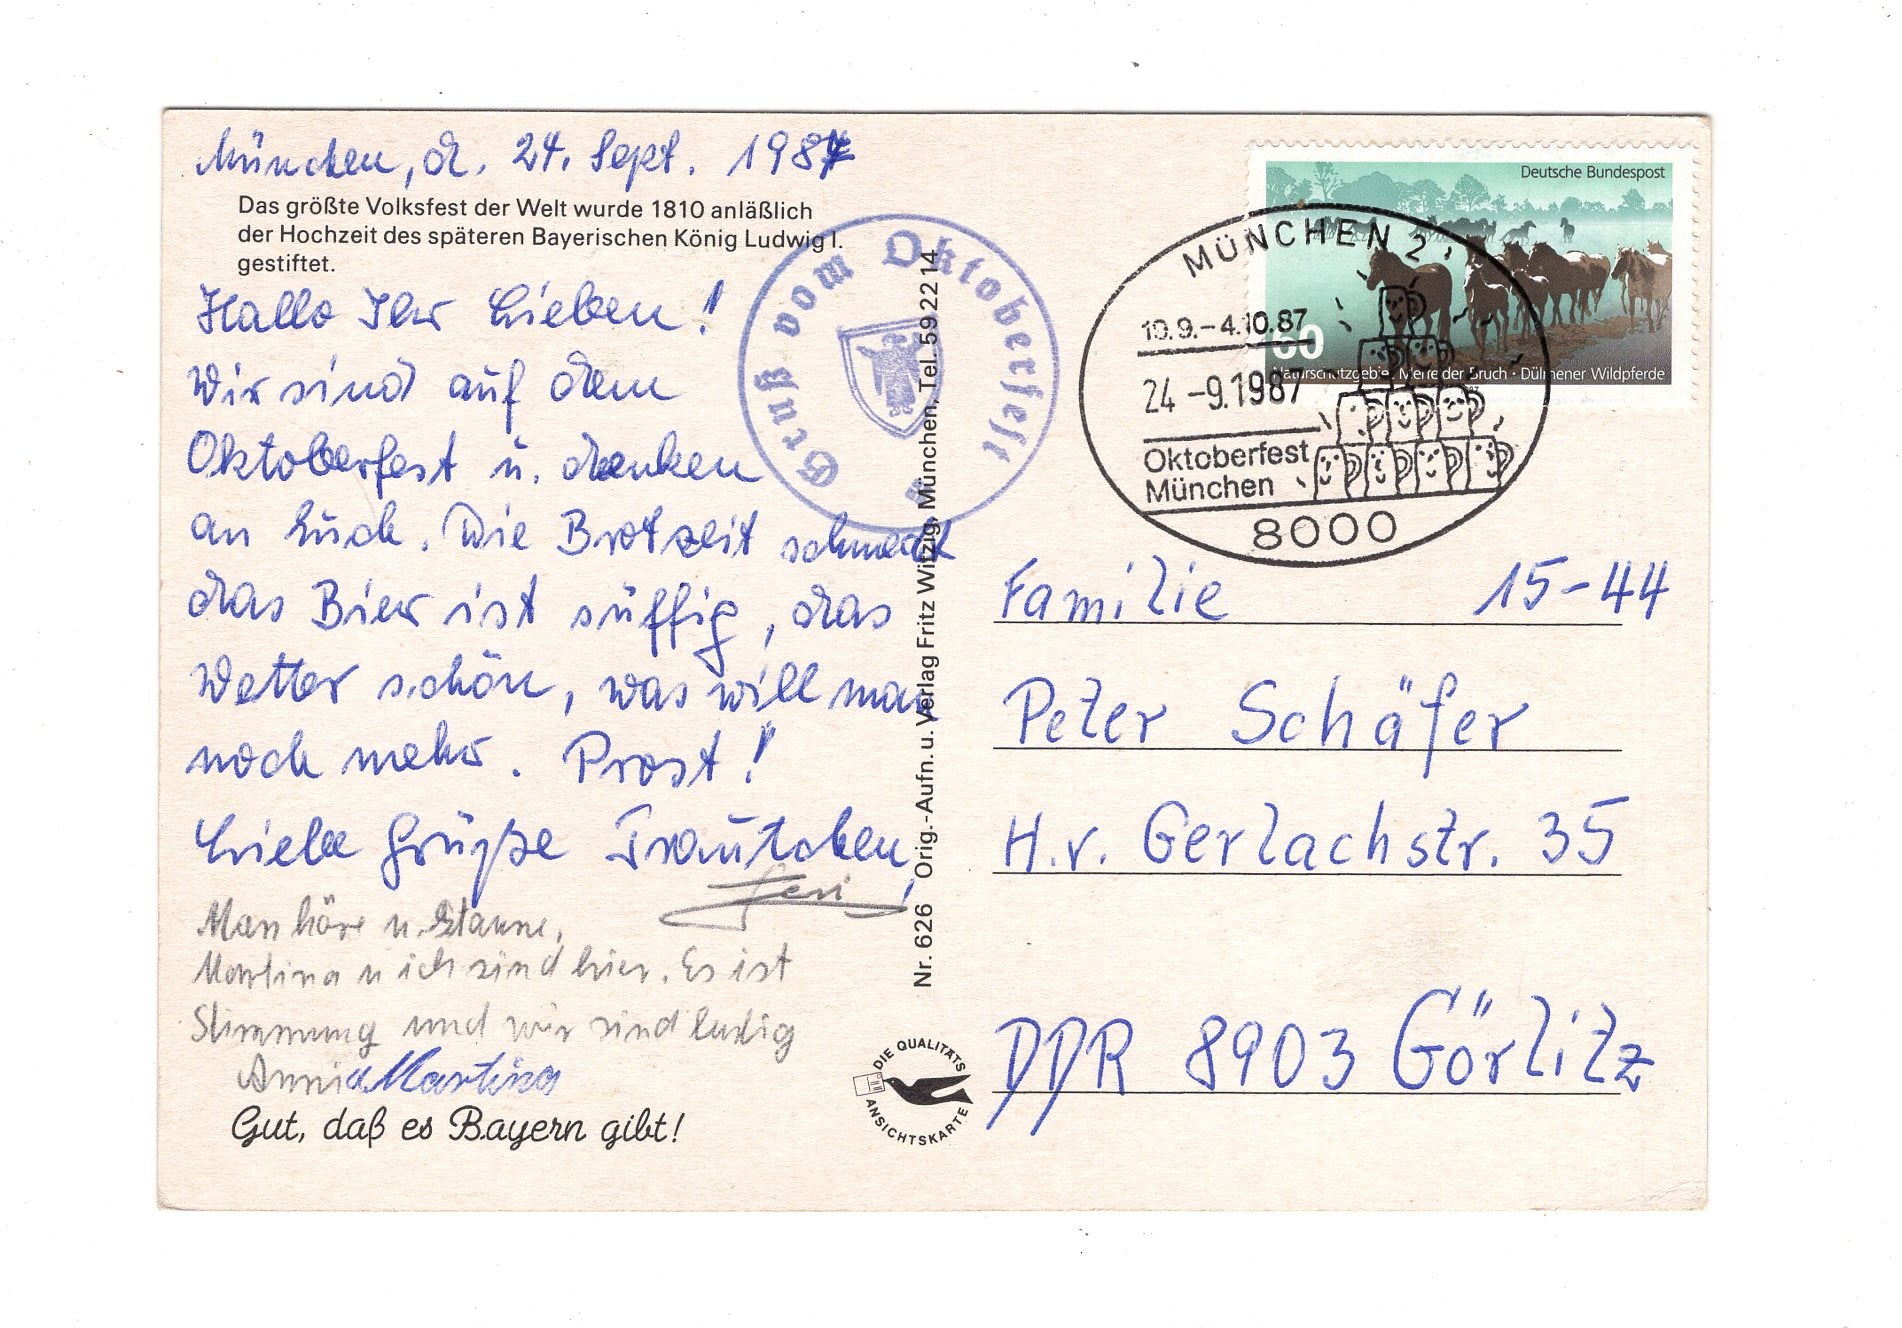 München, d. 24. Sept. 1987
Das größte Volksfest der Welt wurde 1810 anläßlich
der Hochzeit des späteren Bayerischen König Ludwig I.
gestiftet.
Hallo Ihr Lieben!
Wir sind auf dem
Oktoberfest u. denken
an Euch. Die Brotzeit schmeckt
das Bier ist süffig, das
Wetter schön, was will man
noch mehr. Prost!
Liebe Grüße Trautchen,
Man höre u. staune,
Martina u ich sind hier. Es ist
Stimmung und wir sind lustig
Martina
Gut, daß es Bayern gibt!
Gruß vom Oktoberfest
Nr. 626 Orig.-Aufn. u. Verlag Fritz Witzig, München, Tel. 59 22 14
DIE QUALITÄTS
ANSICHTSKARTE
Deutsche Bundespost
60
Naturschutzgebiet Merfelder Bruch · Dülmener Wildpferde
MÜNCHEN 2
19.9.–4.10.87
24 –9.1987
Oktoberfest
München
8000
Familie 15-44
Peter Schäfer
H.v. Gerlachstr. 35
DDR 8903 Görlitz